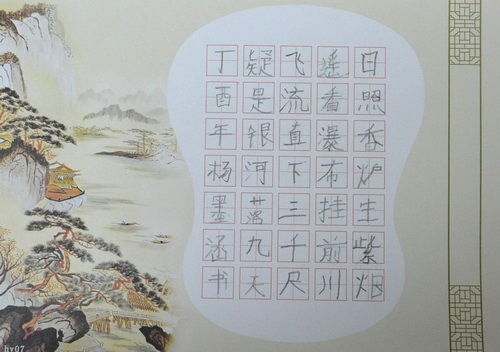 日照香炉生紫烟
遥看瀑布挂前川
飞流直下三千尺
疑是银河落九天
丁酉年杨墨涵书
hy07